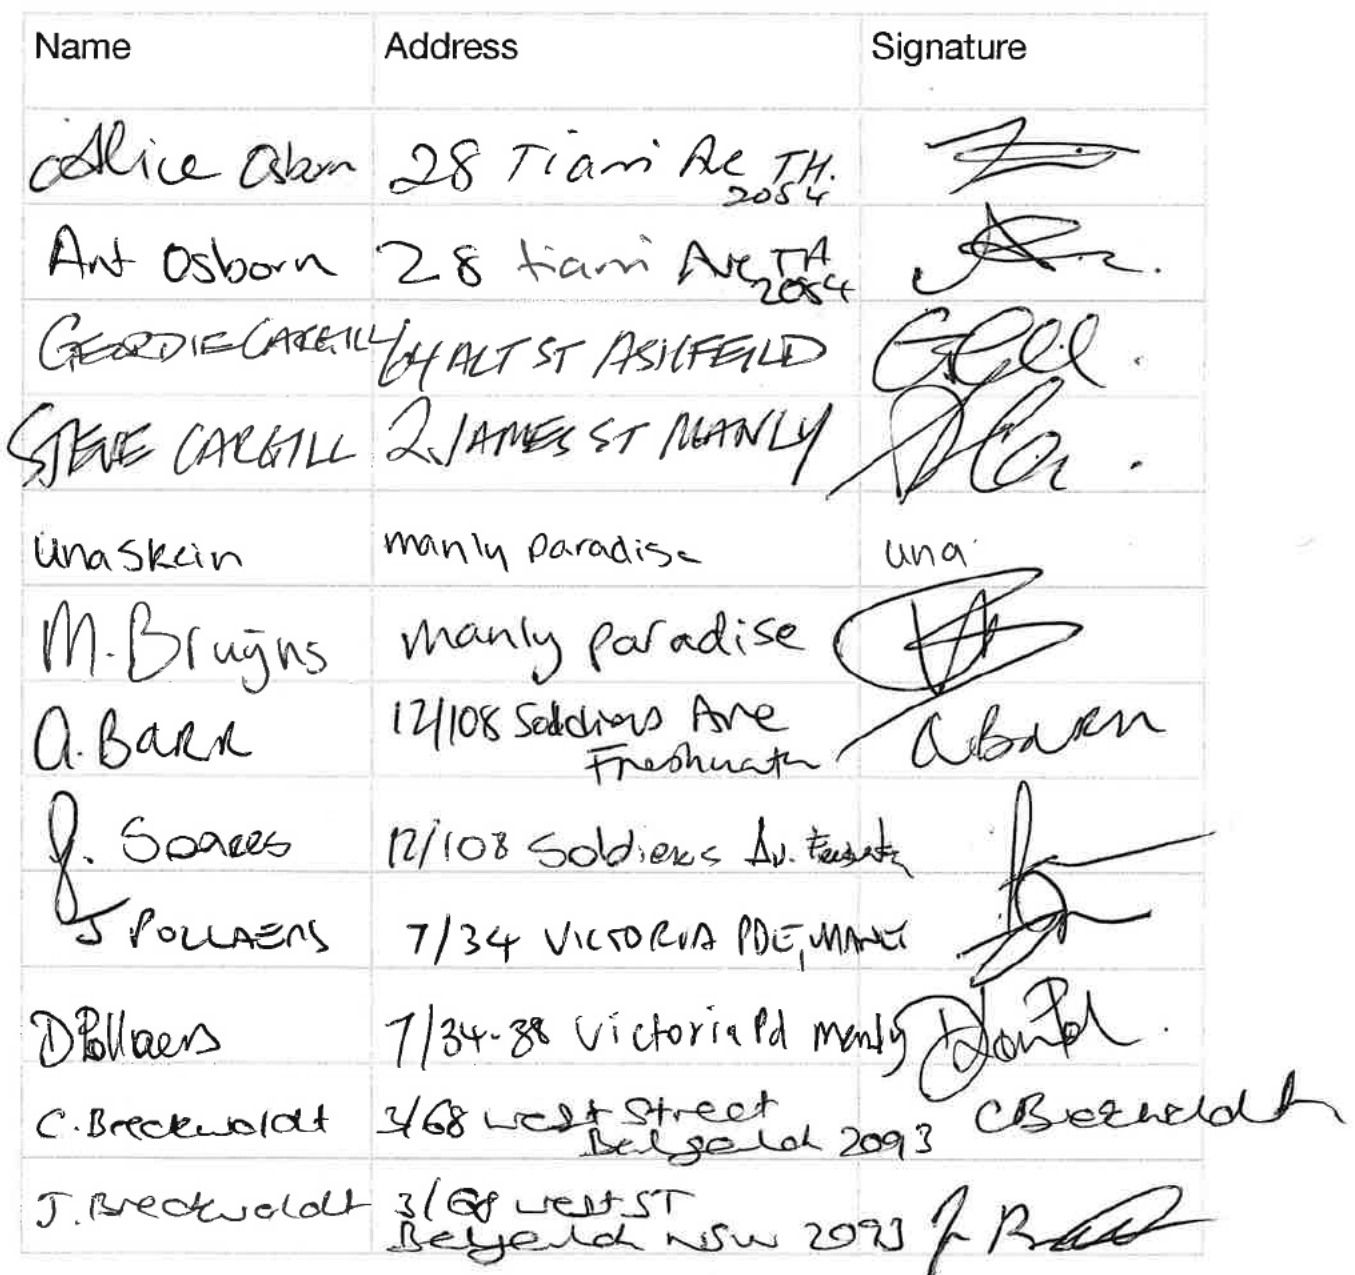 Name Address Signature
Alice Osborn 28 Tiani Ave T.H.
2084
Ant Osborn 28 tiani Ave TH
2084
GEORDIE CARGILL 64 ALT ST ASHFEILD
STEVE CARGILL 2 JAMES ST MANLY
Una Skein manly paradise una
M. Bruijns manly paradise
A. BARR 12/108 Soldiers Ave
Freshwater
J. Soares 12/108 Soldiers Av.
J POLLAERS 7/34 VICTORIA PDE, MANLY
D Pollaers 7/34-38 Victoria Pd Manly
C. Breckwoldt 3/68 West Street C Breckwoldt
2093
J. Breckwoldt 3/68 West ST
NSW 2093